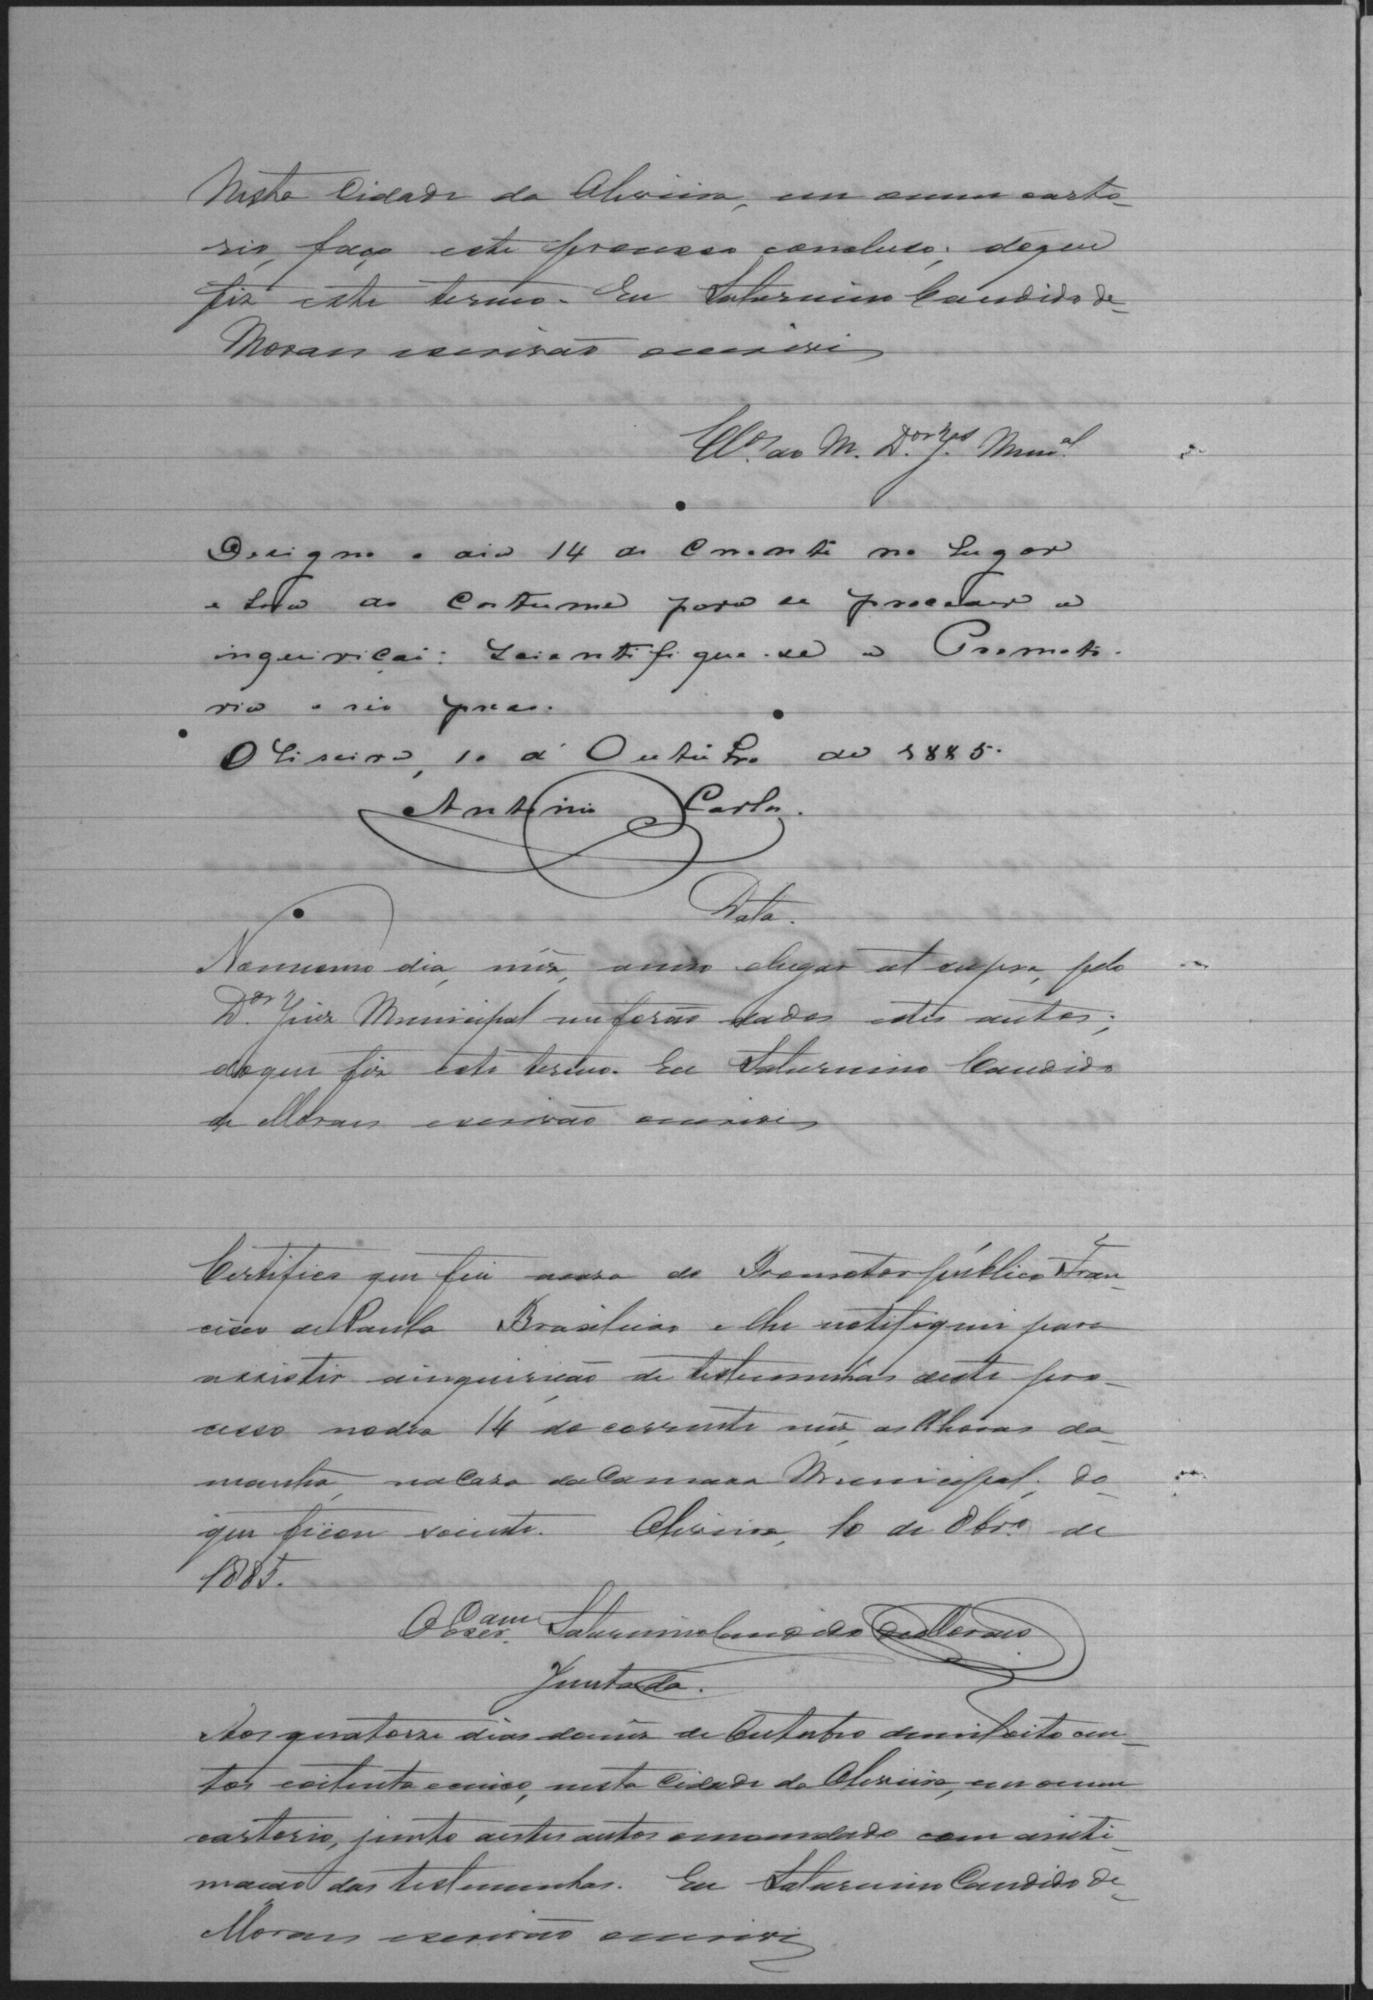 Nesta Cidade da Oliveira, em o meu carto-
rio, faço este processo concluso; doque
fiz este termo. Eu Saturnino Candido de
Moraes escrivão o escrevi
Cls. ao M. Dor. Juiz Munal.
Designo o dia 14 do Corrente no lugar
e hora do Costume para se proceder a
inquirição: Scientifique-se a Promoto-
ria e réo preso.
Oliveira, 10 de Outubro de 1885.
Antonio Carlos.
Data.
No mesmo dia, mez, anno e lugar ut supra, pelo
Dor. Juiz Municipal me forão dados estes autos;
doque fiz este termo. Eu Saturnino Candido
de Moraes escrivão o escrevi
Certifico que fui a casa do Promotor publico Fran-
cisco de Paula Brasileiro e lhe notifiquei para
assistir a inquirição de testemunhas deste pro-
cesso no dia 14 do corrente mez, as horas da
manhã, na Casa da Camara Municipal; do
que ficou sciente. Oliveira, 10 de 8bro. de
1885.
O Escram. Saturnino Candido de Moraes
Juntada.
Aos quatorze dias do mez de Outubro de mil oito cen-
tos e oitenta e cinco, nesta Cidade da Oliveira, em o meu
cartorio, junto a estes autos o mandado com a inti-
mação das testemunhas. Eu Saturnino Candido de
Moraes escrivão o escrevi